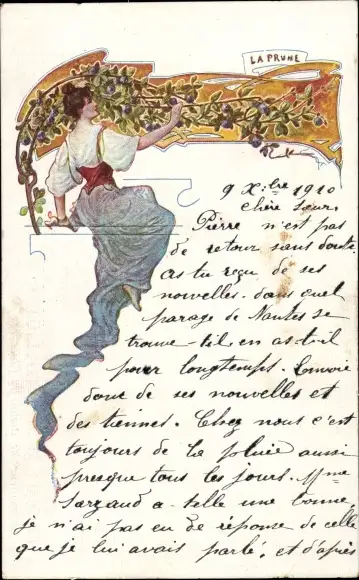 LA PRUNE
9 X.bre 1910
Chère Sœur,
Pierre n'est pas
de retour sans doute
as tu reçu de ses
nouvelles. dans quel
parage de Nantes se
trouve-til, en as-t-il
pour longtemps. Envoie
donc de ses nouvelles et
des tiennes. Chez nous c'est
toujours de la pluie aussi
presque tous les jours. Mme
Sarzaud a-telle une bonne,
je n'ai pas eu de réponse de celle
que je lui avais parlé, et d'après